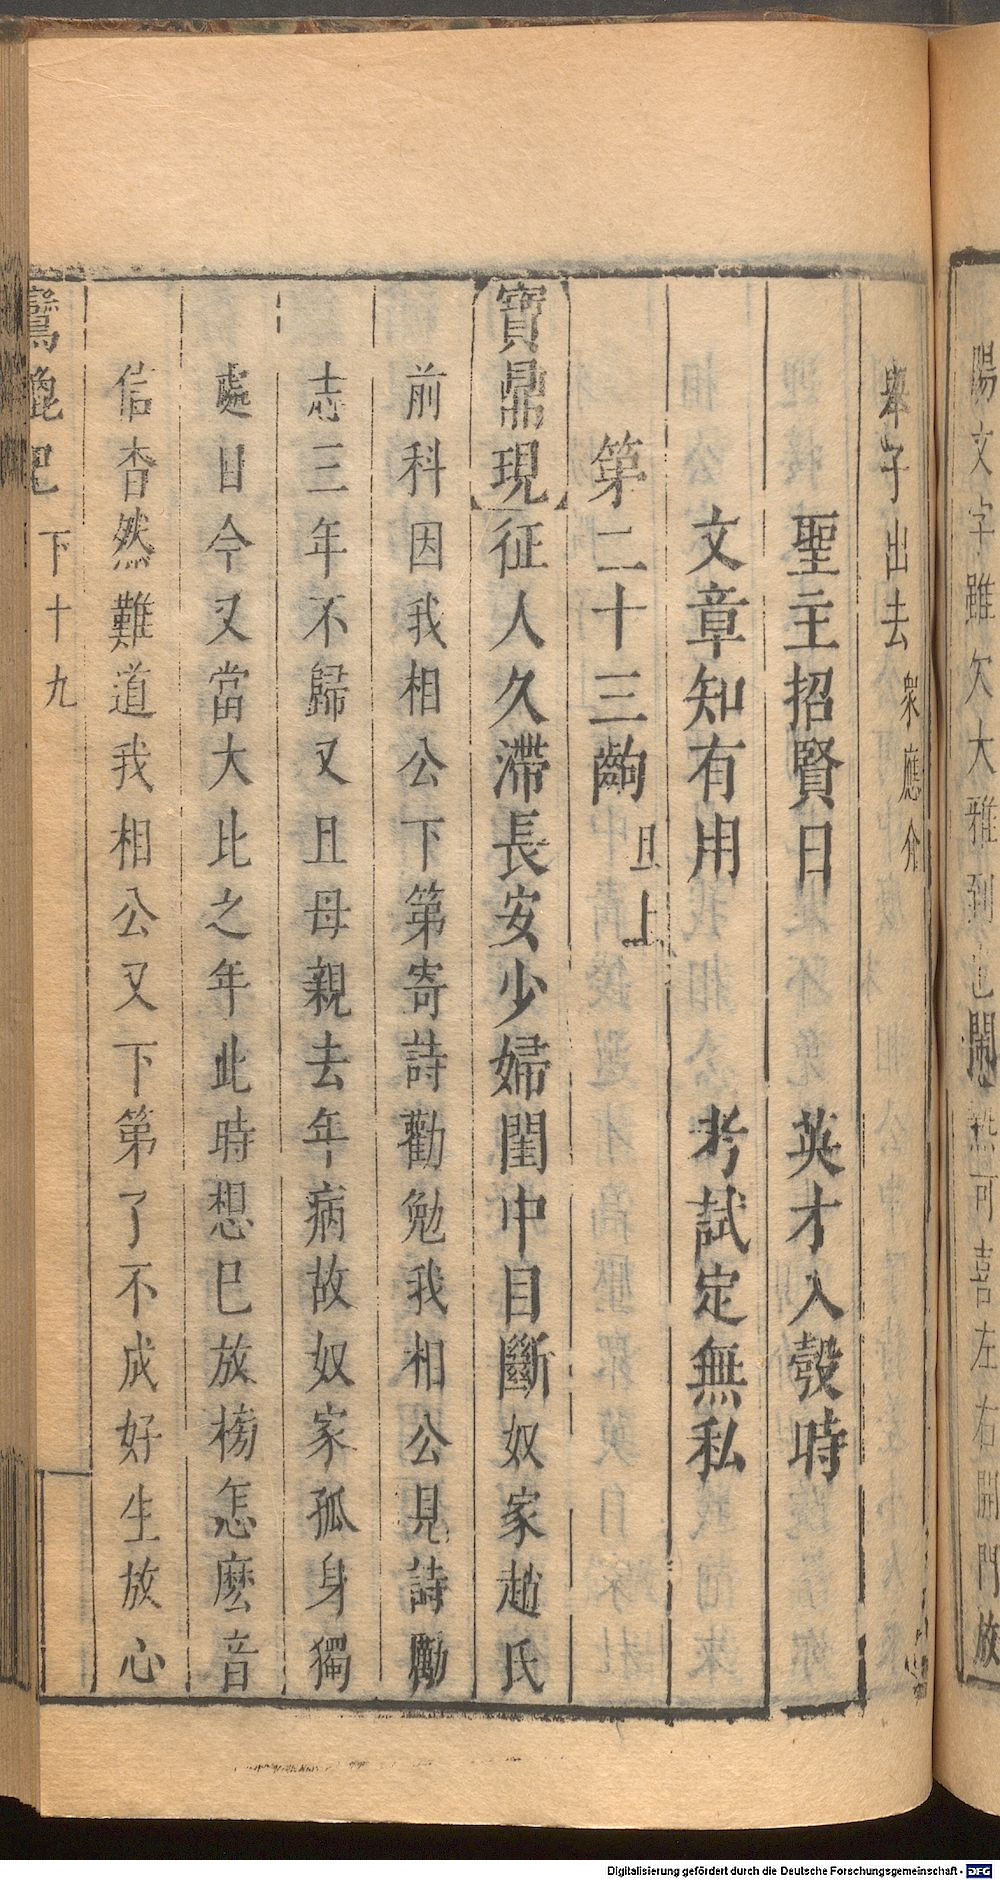 陽文字雖欠大雅到也鬧熱可喜左右開門放
舉子出去衆應介
聖主招賢日 英才入彀時
文章知有用 考試定無私
第二十三齣 旦上
【寶鼎現】征人久滯長安少婦閨中目斷奴家趙氏
前科因我相公下第寄詩勸勉我相公見詩勵
志三年不歸又且母親去年病故奴家孤身獨
處目今又當大比之年此時想已放榜怎麽音
信杳然難道我相公又下第了不成好生放心
鸞鎞記 下十九
Digitalisierung gefördert durch die Deutsche Forschungsgemeinschaft - DFG